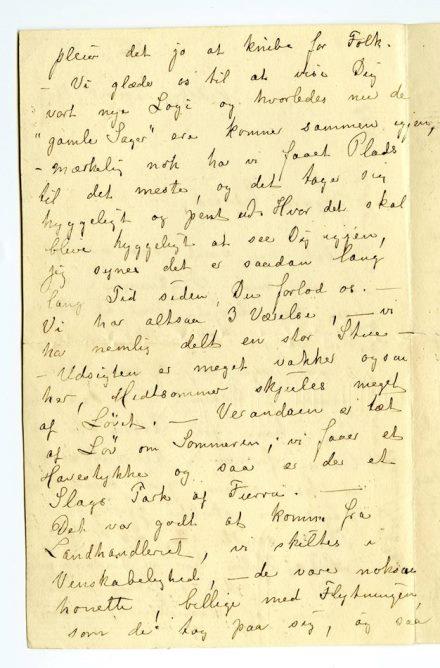 pleier det jo at knibe for Folk.
- Vi glæder os til at vise Dig
vort nye Logi og hvorledes nu de
"gamle Sager" ere komne sammen igjen,
- mærkelig nok har vi faaet Plads
til det meste, og det tager sig
hyggeligt og pent ud. Hvor det skal
blive hyggeligt at see Dig igjen,
jeg synes det er saadan lang
lang Tid siden, Du forlod os. —
Vi har altsaa 3 Værelse, — vi
ha nemlig delt en stor Stue —
- Udsigten er meget vakker ogsaa
her, Midtsommer skjules meget
af Løvet. — Verandaen er tæt
af Løv om Sommeren; vi faaer et
Havestykke og saa er der et
Slags Park af Furru. —
Det var godt at komme fra
Landhandleriet, vi skiltes i
Venskabelighed, — de vare noksaa
honette, billige med Flytningen,
som de tog paa sig, og saa